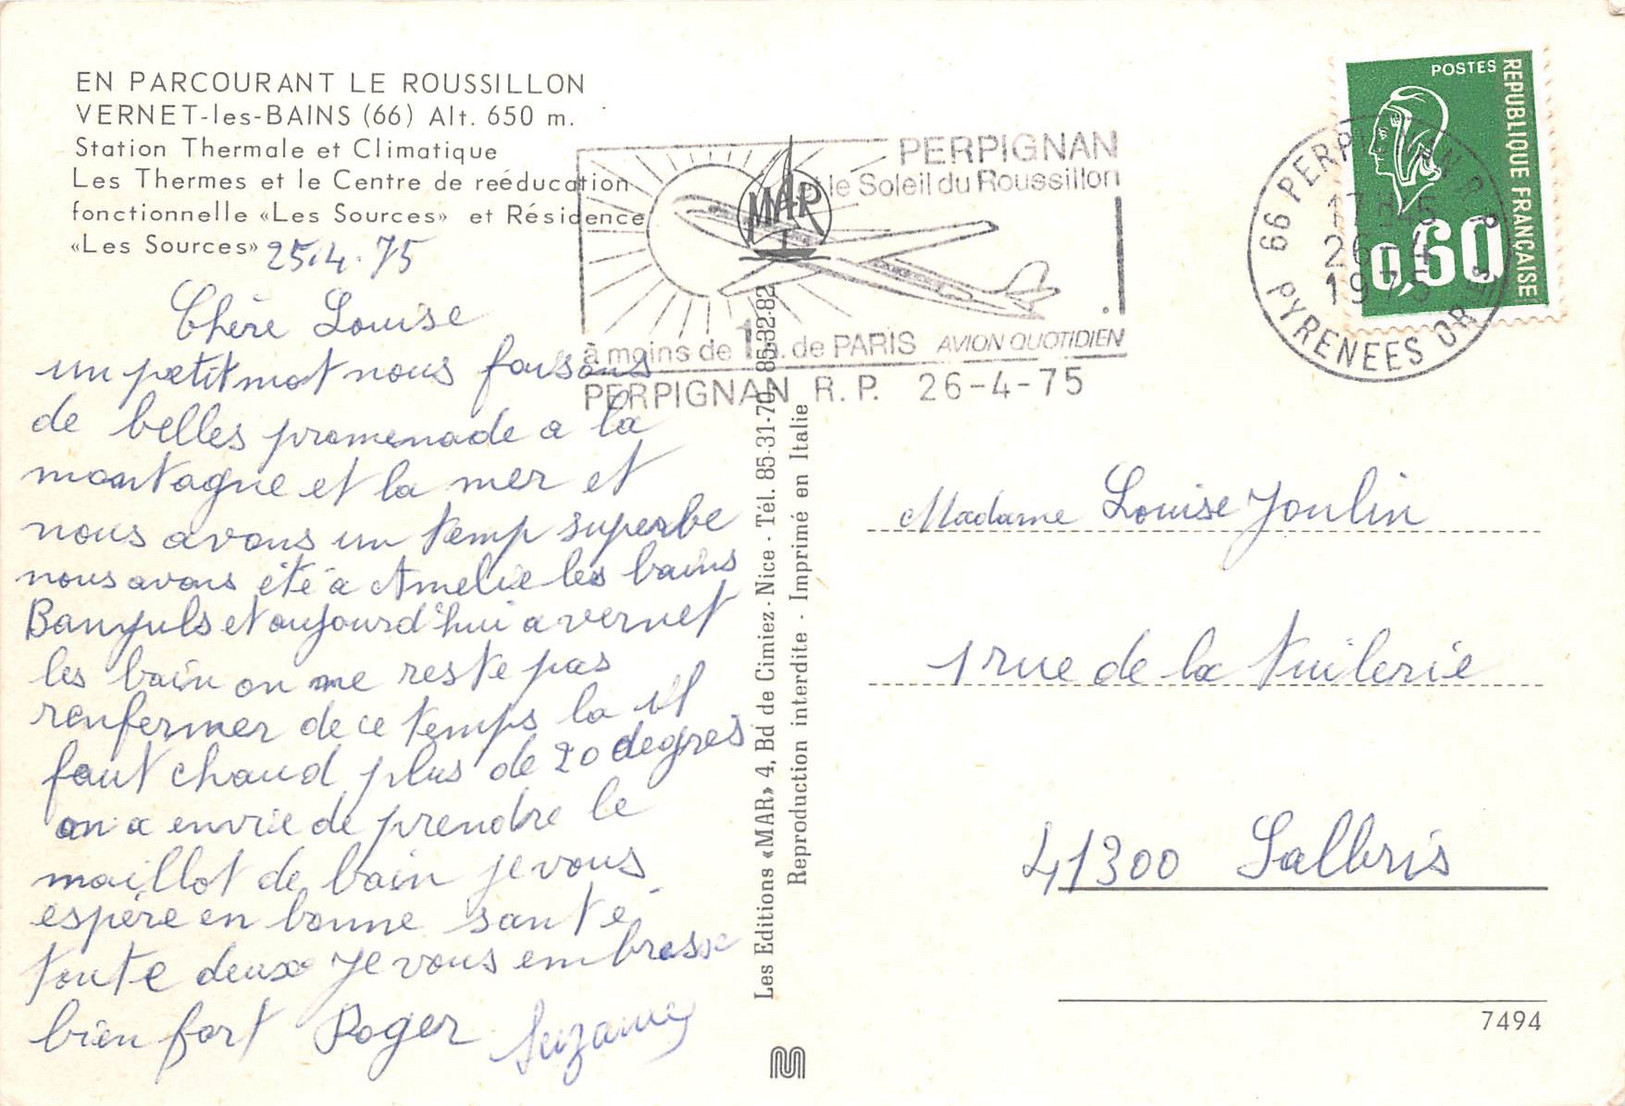 EN PARCOURANT LE ROUSSILLON
VERNET-les-BAINS (66) Alt. 650 m.
Station Thermale et Climatique
Les Thermes et le Centre de reéducation
fonctionnelle «Les Sources» et Résidence
«Les Sources»
25.4.75
Chère Louise
un petit mot nous faisons
de belles promenade a la
montagne et la mer et
nous avons un temp superbe
nous avons été à Amelie les bains
Banyuls et aujourd'hui a vernet
les bain on me reste pas
renfermer de ce temps la il
faut chaud plus de 20 degrés
on a envrie de prendre le
maillot de bain je vous
espère en bonne santé
toute deux Je vous embrasse
bien fort Roger Suzanne
PERPIGNAN
le Soleil du Roussillon
MAR
à moins de 1h. de PARIS AVION QUOTIDIEN
PERPIGNAN R.P. 26-4-75
Les Editions «MAR» 4, Bd de Cimiez - Nice - Tél. 85-31-70, 85-32-82
Reproduction interdite - Imprimé en Italie
M
POSTES
REPUBLIQUE FRANÇAISE
0,60
66 PERPIGNAN R.P.
17H15
26-4
1975
PYRENEES OR.
Madame Louise Joulin
1 rue de la Tuilerie
41300 Salbris
7494